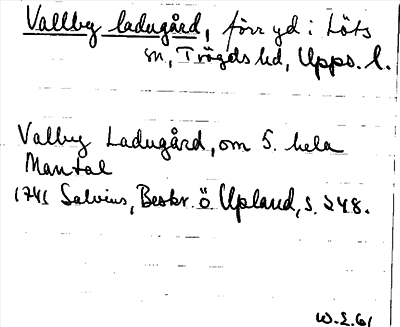 Vallby ladugård, förr gd i Löts
sn, Trögds hd, Upps. l.
Valby Ladugård, om 5. hela
Mantal
1741 Salvius, Beskr. ö. Upland, s. 248.
W.E. 61